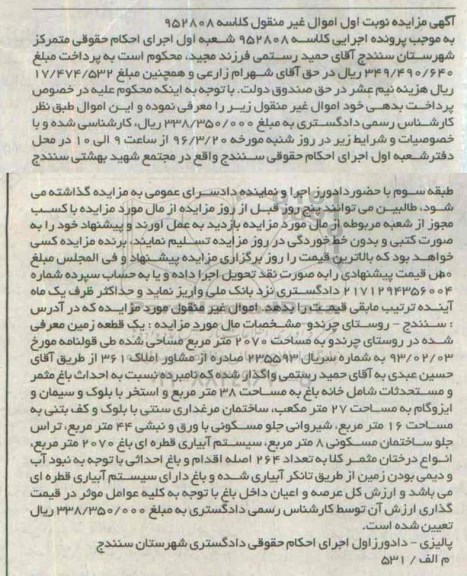 آگهی مزایده نوبت اول اموال غیر منقول کلاسه ۹۵۲۸۰۸
به موجب پرونده اجرایی کلاسه ۹۵۲۸۰۸ شعبه اول اجرای احکام حقوقی متمرکز
شهرستان سنندج آقای حمید رستمی فرزند مجید، محکوم است به پرداخت مبلغ
۳۴۹/۴۹۰/۶۴۰ ریال در حق آقای شهرام زارعی و همچنین مبلغ ۱۷/۴۷۴/۵۳۲
ریال هزینه نیم عشر در حق صندوق دولت. با توجه به اینکه محکوم علیه در خصوص
پرداخت بدهی خود اموال غیر منقول زیر را معرفی نموده و این اموال طبق نظر
کارشناس رسمی دادگستری به مبلغ ۳۳۸/۳۵۰/۰۰۰ ریال، کارشناسی شده و با
خصوصیات و شرایط زیر در روز شنبه مورخه ۹۶/۳/۲۰ از ساعت ۹ الی ۱۰ در محل
دفترشعبه اول اجرای احکام حقوقی سنندج واقع در مجتمع شهید بهشتی سنندج
طبقه سوم با حضور دادورز اجرا و نماینده دادسرای عمومی به مزایده گذاشته می
شود، طالبین می توانند پنج روز قبل از روز مزایده از مال مورد مزایده با کسب
مجوز از شعبه مربوطه از مال مورد مزایده بازدید به عمل آورند و پیشنهاد خود را به
صورت کتبی و بدون خط خوردگی در روز مزایده تسلیم نمایند، برنده مزایده کسی
خواهد بود که بالاترین قیمت را روز برگزاری مزایده پیشنهاد و فی المجلس مبلغ
۱۰٪ قیمت پیشنهادی رابه صورت نقد تحویل اجرا داده و یا به حساب سپرده شماره
۲۱۷۱۲۹۴۳۵۶۰۰۴ دادگستری نزد بانک ملی واریز نماید و حداکثر ظرف یک ماه
آینده ترتیب مابقی قیمت را بدهد. اموال غیر منقول مورد مزایده که در آدرس
: سنندج - روستای چرندو مشخصات مال مورد مزایده : یک قطعه زمین معرفی
شده در روستای چرندو به مساحت ۲۰۷۰ متر مربع مساحی شده طی قولنامه مورخ
۹۳/۰۲/۰۳ به شماره سریال ۲۳۵۵۹۳ صادره از مشاور املاک ۳۶۱ از طریق آقای
حسین عبدی به آقای حمید رستمی واگذار شده که نامبرده نسبت به احداث باغ مثمر
و مستحدثات شامل خانه باغ به مساحت ۳۸ متر مربع و استخر با بلوک و سیمان و
ایزوگام به مساحت ۲۷ متر مکعب، ساختمان مرغداری سنتی با بلوک و کف بتنی به
مساحت ۱۶ متر مربع، شیروانی جلو مسکونی با ورق و نبشی ۴۴ متر مربع، تراس
جلو ساختمان مسکونی ۸ متر مربع، سیستم آبیاری قطره ای باغ ۲۰۷۰ متر مربع،
انواع درختان مثمر کلا به تعداد ۲۶۴ اصله اقدام و باغ احداثی با توجه به نبود آب
و دیمی بودن زمین از طریق تانکر آبیاری شده و باغ دارای سیستم آبیاری قطره ای
می باشد و ارزش کل عرصه و اعیان داخل باغ با توجه به کلیه عوامل موثر در قیمت
گذاری ارزش آن توسط کارشناس رسمی دادگستری به مبلغ ۳۳۸/۳۵۰/۰۰۰ ریال
تعیین شده است.
پالیزی - دادورز اول اجرای احکام حقوقی دادگستری شهرستان سنندج
م الف / ۵۳۱